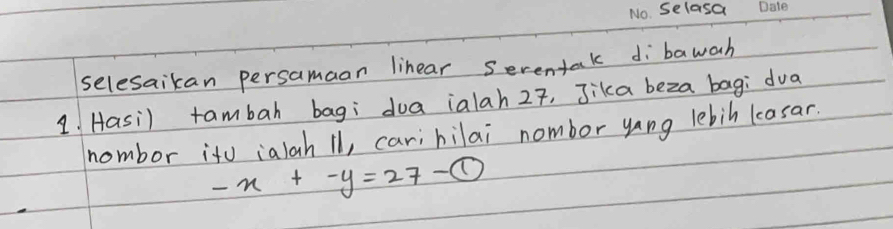 No. Selasa Date
selesaikan persamaan linear serentak di bawah
1. Hasil tambah bagi dua ialah 27. Jika beza bagi dua
nombor itu ialah 11, cari nilai nombor yang lebih kasar.
-x + -y = 27 -①